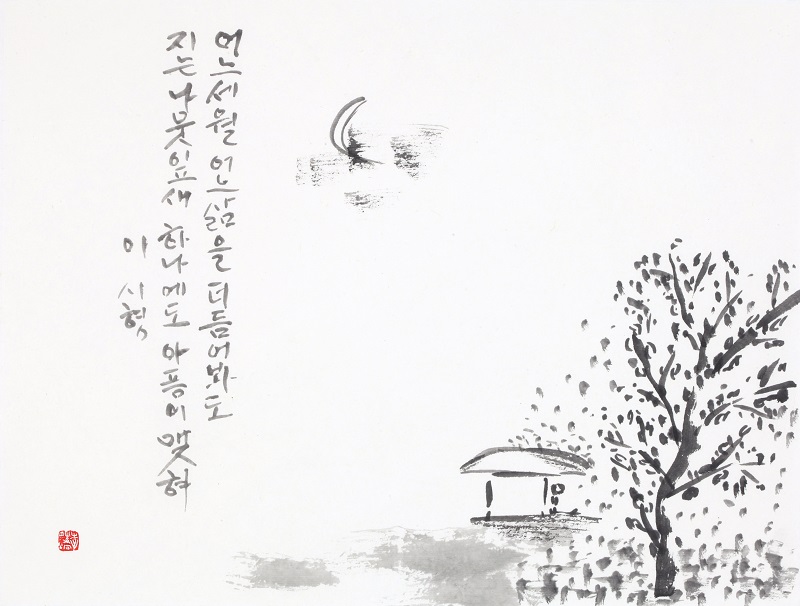 어느 세월 어느 삶을 더듬어봐도
지는 나뭇잎새 하나에도 아픔이 맺혀
이시형